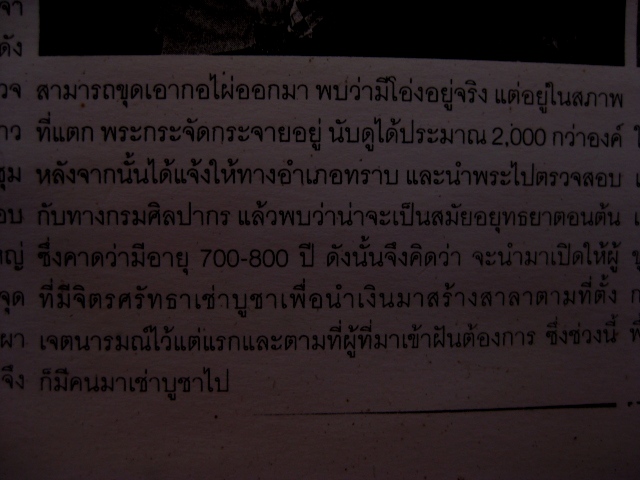 สามารถขุดเอากอไผ่ออกมา พบว่ามีโอ่งอยู่จริง แต่อยู่ในสภาพ
ที่แตก พระกระจัดกระจายอยู่ นับดูได้ประมาณ 2,000 กว่าองค์
หลังจากนั้นได้แจ้งให้ทางอำเภอทราบ และนำพระไปตรวจสอบ
กับทางกรมศิลปากร แล้วพบว่าน่าจะเป็นสมัยอยุทธยาตอนต้น
ซึ่งคาดว่ามีอายุ 700-800 ปี ดังนั้นจึงคิดว่า จะนำมาเปิดให้ผู้
ที่มีจิตรศรัทธาเช่าบูชาเพื่อนำเงินมาสร้างสาลาตามที่ตั้ง
เจตนารมณ์ไว้แต่แรกและตามที่ผู้ที่มาเข้าฝันต้องการ ซึ่งช่วงนี้
ก็มีคนมาเช่าบูชาไป